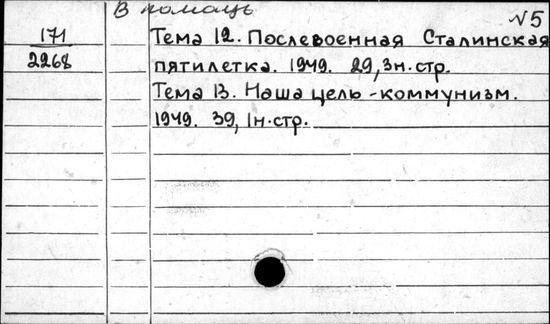 В помощь
N5
171
2268
Тема 12. Послевоенная Сталинская
пятилетка. 1949. 29, 3н. стр.
Тема 13. Наша цель - коммунизм.
1949. 39, 1н. стр.